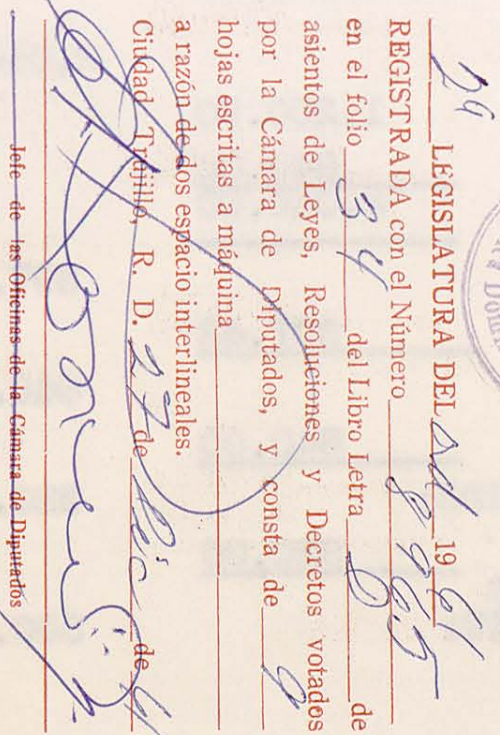 2ª LEGISLATURA DEL Ord 1961
REGISTRADA con el Número 8965
en el folio 34 del Libro Letra D de
asientos de Leyes, Resoluciones y Decretos votados
por la Cámara de Diputados, y consta de 9
hojas escritas a máquina
a razón de dos espacio interlineales.
Ciudad Trujillo, R. D. 27 de Dic de 61
Jefe de las Oficinas de la Cámara de Diputados